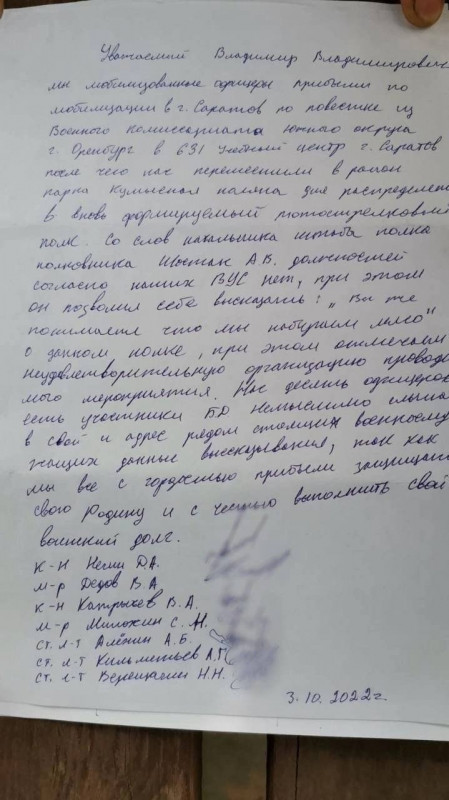 Уважаемый Владимир Владимирович
мы мобилизованные офицеры прибыли по
мобилизации в г. Саратов по повестке из
Военного комиссариата Южного округа
г. Оренбург в 631 учебный центр г. Саратов
после чего нас переместили в район
парка Кумысная поляна для распределен
в вновь формируемый мотострелковый
полк. Со слов начальника штаба полка
полковника Шостак А.В. должностей
согласно наших ВУС нет, при этом
он позволил себе высказать: „Вы же
понимаете что мы набираем мясо"
о данном полке, при этом отмечаем
неудовлетворительную организацию проводи
мого мероприятия. Нас десять офицеров
есть участники БД Немыслимо слышать
в свой и адрес рядом стоящих военнослу
жащих данные высказывания, так как
мы все с гордостью прибыли защищать
свою Родину и с честью выполнить свой
воинский долг.
к-н Немш Д.А.
м-р Дедов В.А
к-н В.А.
м-р Милохин С.М.
ст. л-т Алёнин А.Б.
ст. л-т А.Г.
ст. л-т Верещагин Н.Н.
3.10.2022г.